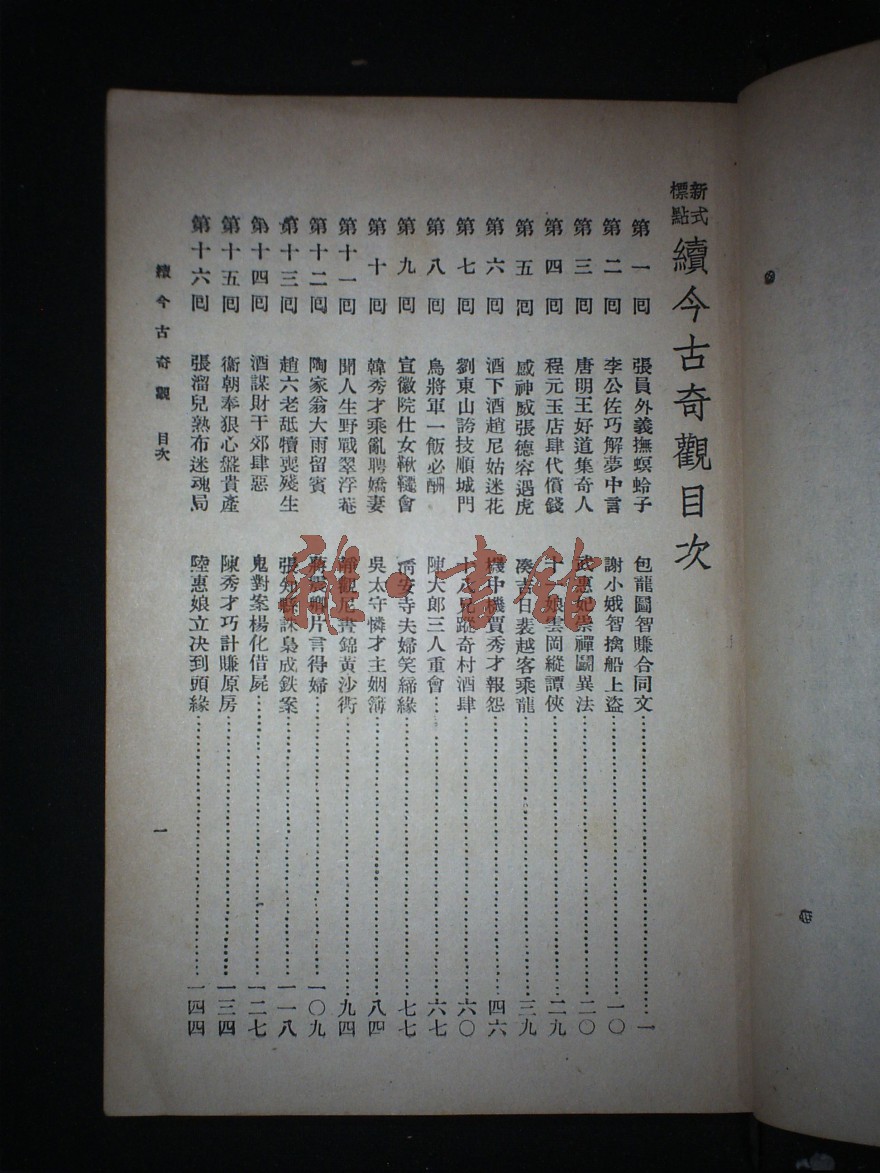 新式標點 續今古奇觀目次
第一囘 張員外義撫螟蛉子 包龍圖智賺合同文 一
第二囘 李公佐巧解夢中言 謝小娥智擒船上盜 一〇
第三囘 唐明王好道集奇人 武惠妃崇禪鬭異法 二〇
第四囘 程元玉店肆代償錢 十一娘雲岡縱譚俠 二九
第五囘 感神威張德容遇虎 凑吉日裴越客乘龍 三九
第六囘 酒下酒趙尼姑迷花 機中機賈秀才報怨 四六
第七囘 劉東山誇技順城門 十八兄蹤奇村酒肆 六〇
第八囘 烏將軍一飯必酬 陳大郎三人重會 六七
第九囘 宣徽院仕女鞦韆會 淸安寺夫婦笑締緣 七七
第十囘 韓秀才乘亂聘嬌妻 吳太守憐才主姻簿 八四
第十一囘 聞人生野戰翠浮菴 靜觀尼晝錦黃沙衖 九四
第十二囘 陶家翁大雨留賓 蔣震卿片言得婦 一〇九
第十三囘 趙六老舐犢喪殘生 張知縣誅梟成鉄案 一一八
第十四囘 酒謀財于郊肆惡 鬼對案楊化借屍 一二七
第十五囘 衞朝奉狠心盤貴產 陳秀才巧計賺原房 一三四
第十六囘 張溜兒熟布迷魂局 陸惠娘立决到頭緣 一四四
續今古奇觀 目次
一
雜·書館